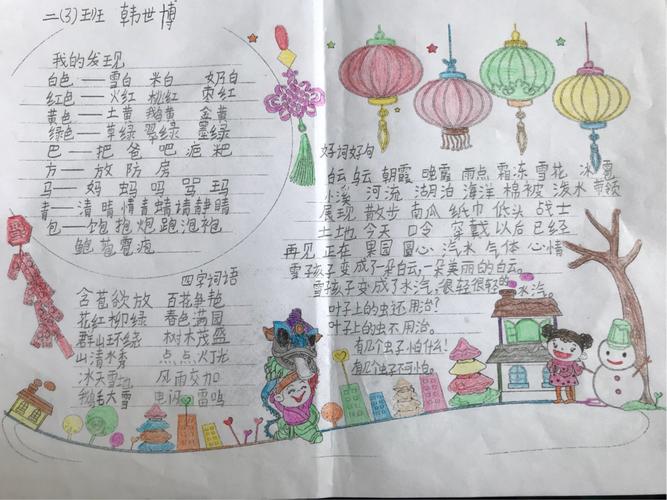 二(3)班 韩世博
我的发现
白色——雪白 米白 奶白
红色——火红 桃红 枣红
黄色——土黄 鹅黄 金黄
绿色——草绿 翠绿 墨绿
巴——把 爸 吧 疤 粑
方——放 防 房
马——妈 蚂 吗 骂 玛
青——清 晴 情 青 蜻 请 静 睛
包——饱 抱 炮 跑 泡 袍
鲍 苞 雹 疱
四字词语
含苞欲放 百花争艳
花红柳绿 春色满园
群山环绕 树木茂盛
山清水秀 点点灯光
冰天雪地 风雨交加
鹅毛大雪 电闪雷鸣
好词好句
白云 乌云 朝霞 晚霞 雨点 霜冻 雪花 冰雹
小溪 河流 湖泊 海洋 棉被 泼水 带领
展现 散步 南瓜 纸巾 低头 战士
土地 今天 口令 穿戴 以后 已经
再见 正在 果园 圆心 汽水 气体 心情
雪孩子变成了一朵白云,一朵美丽的白云。
雪孩子变成了水汽,很轻很轻的水汽。
叶子上的虫还用治?
叶子上的虫不用治。
有几个虫子怕什么!
有几个虫子不可怕。